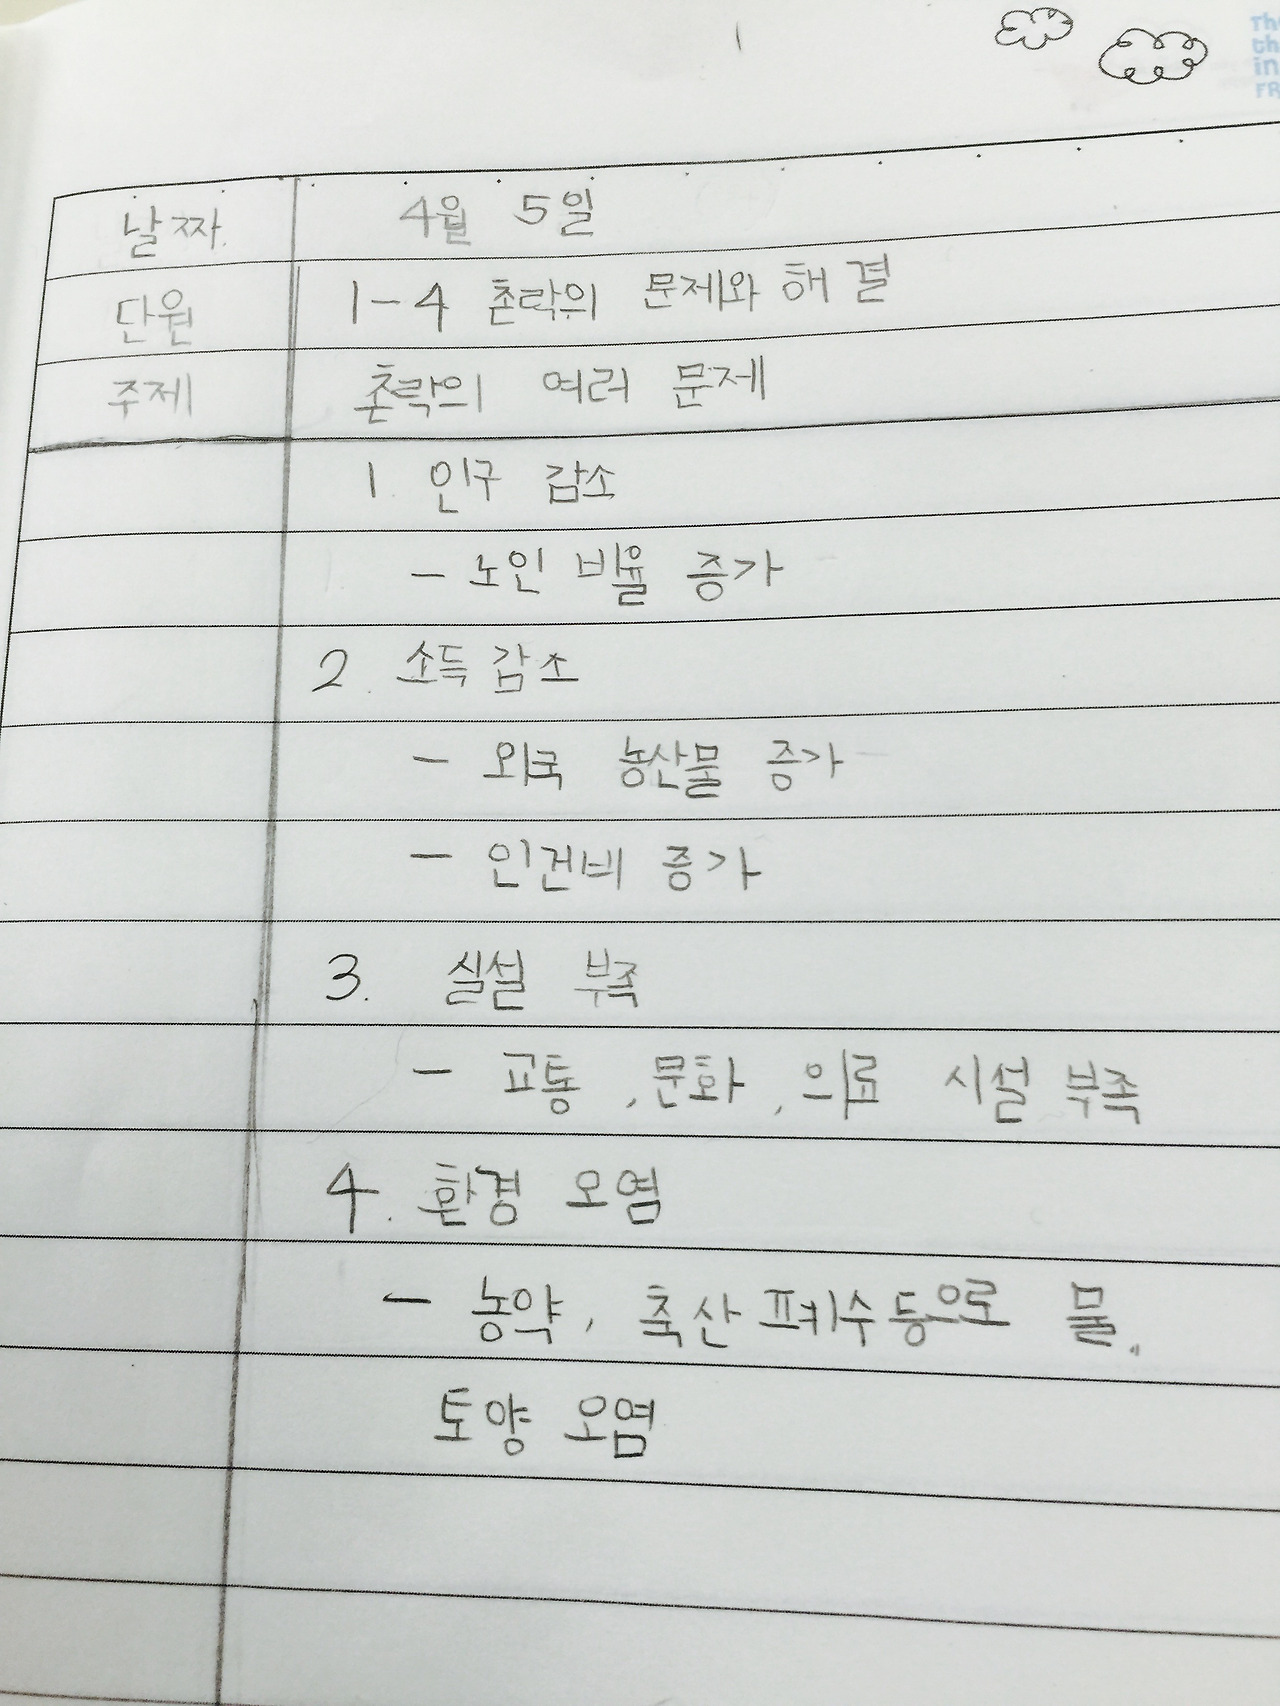 날짜 4월 5일
단원 1-4 촌락의 문제와 해결
주제 촌락의 여러 문제
1. 인구 감소
- 노인 비율 증가
2. 소득 감소
- 외국 농산물 증가
- 인건비 증가
3. 실설 부족
- 교통, 문화, 의료 시설 부족
4. 환경 오염
- 농약, 축산 폐수 등으로 물,
토양 오염